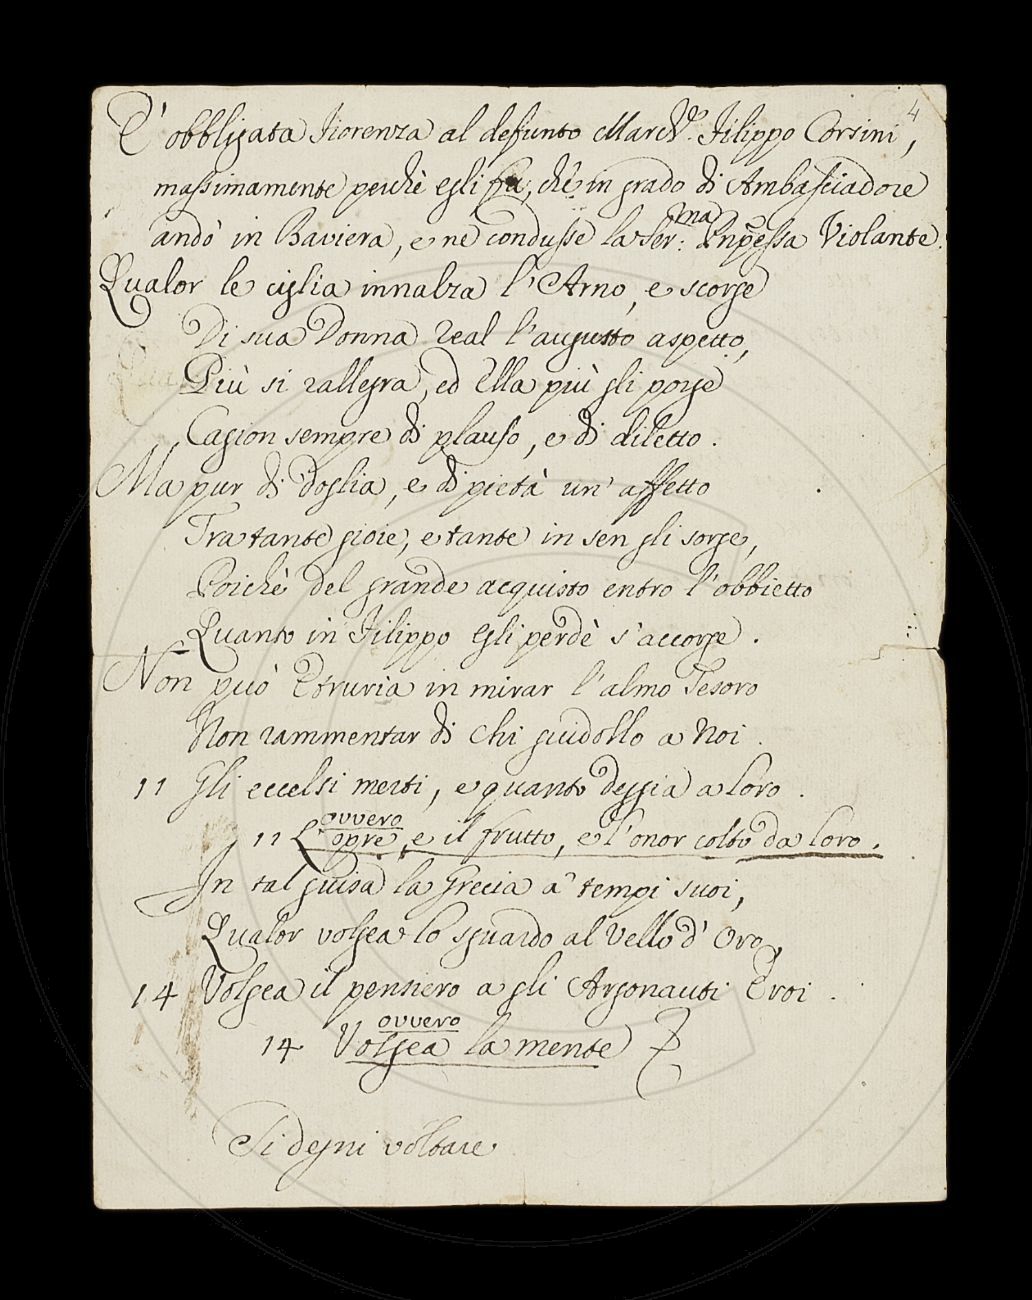 4
È obbligata Fiorenza al defunto March.e Filippo Corsini,
massimamente perchè egli fu, chè in grado di Ambasciadore
andò in Baviera, e ne condusse la Ser.ma Pnpessa Violante.
Qualor le ciglia innalza l'Arno, e scorge
Di sua Donna real l'augusto aspetto,
Più si rallegra, ed Ella più gli porge
Cagion sempre di plauso, e di diletto.
Ma pur di doglia, e di pietà un' affetto
Tra tante gioie, e tante in sen gli sorge,
Poichè del grande acquisto entro l'obbietto
Quanto in Filippo Egli perdè s'accorge.
Non può Etruria in mirar l'almo Tesoro
Non rammentar di chi guidollo a Noi.
11 Gli eccelsi merti, e quanto deggia a loro.
ovvero
11 L'opre, e il frutto, e l'onor colto da loro.
In tal guisa la Grecia a' tempi suoi,
Qualor volgea lo sguardo al Vello d'Oro,
14 Volgea il pensiero a gli Argonauti Eroi.
ovvero
14 Volgea la mente
Si degni voltare